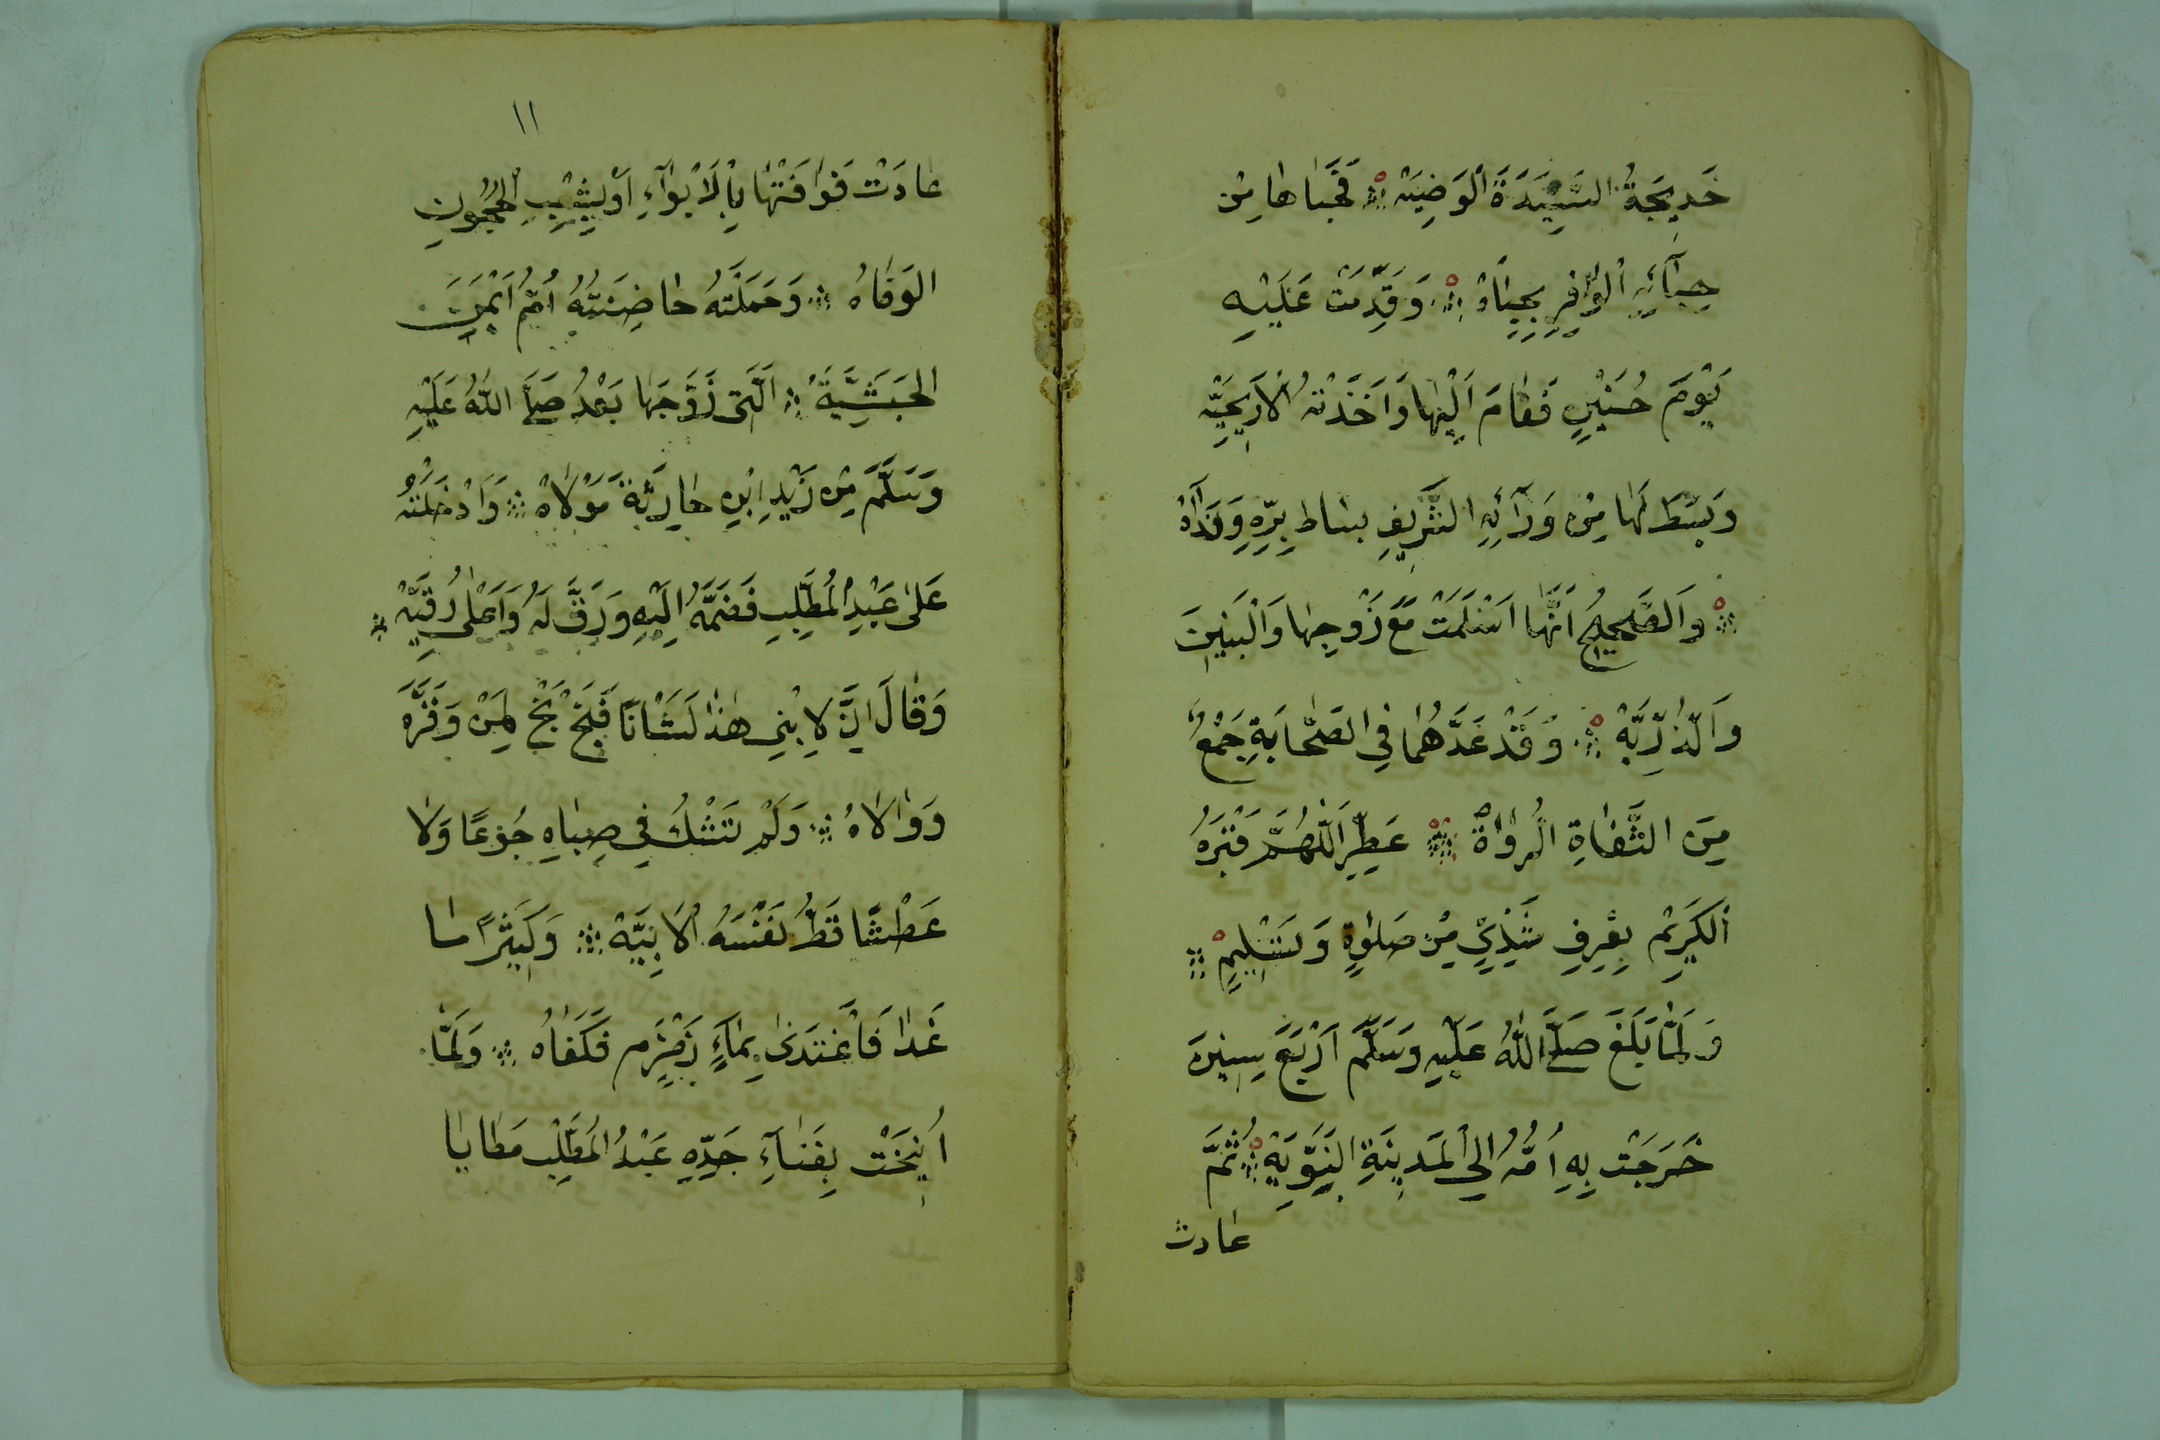 خَدِيجَةُ السَّيِّدَةُ الْوَضِيَّه فَحَبَاهَا مِنْ
حِبَآئِهِ الْوَافِرِ بِحِبَاهْ وَقَدِمَتْ عَلَيْهِ
يَوْمَ حُنَيْنٍ فَقَامَ اِلَيْهَا وَاَخَذَتْهُ الْاَرْيَحِيَّه
وَبَسَطَ لَهَا مِنْ وَرَآئِهِ الشَّرِيفِ بساطَ بِرِّهِ وَنَدَاهْ
وَالصَّحِيحُ اَنَّهَا اَسْلَمَتْ مَعَ زَوْجِهَا وَالْبَنِينَ
وَالذُّرِّيَّةْ وَقَدْ عَدَّهُمَا فِي الصَّحَابَةِ جَمْعٌ
مِنَ الثِّقَاةِ الرُّوَاةْ عَطِّرِ اللّٰهُمَّ قَبْرَهُ
الْكَرِيمْ بِعَرْفٍ شَذِيٍّ مِنْ صَلٰوةٍ وَتَسْلِيمٍ
وَلَمَّا بَلَغَ صَلَّى اللّٰهُ عَلَيْهِ وَسَلَّمَ اَرْبَعَ سِنِينَ
خَرَجَتْ بِهِ اُمُّهُ اِلَى الْمَدِينَةِ النَّبَوِيَّةْ ثُمَّ
عادت
١١
عَادَتْ فَوَافَتْهَا بِالْاَبْوَآءِ اَوْ بِشِعْبِ الْحَجُونِ
الوَفَاهُ وَحَمَلَتْهُ حَاضِنَتُهُ اُمُّ اَيْمَنَ
الحَبَشِيَّةُ اَلَّتِى زَوَّجَهَا بَعْدُ صَلَّى اللّٰهُ عَلَيْهِ
وَسَلَّمَ مِنْ زَيْدِ ابْنِ حَارِثَةَ مَوْلَاهْ وَاَدْخَلَتْهُ
عَلٰى عَبْدِ الْمُطَّلِبِ فَضَمَّهُ اِلَيْهِ وَرَقَّ لَهُ وَاَعْلٰى رُقِيَّهْ
وَقَالَ اِنَّ لِابْنِى هٰذَا لَشَأْنًا فَبَخْ بَخْ لِمَنْ وَقَّرَهُ
وَوَالَاهُ وَلَمْ تَشْكُ فِي صِبَاهِ جُوعًا وَلَا
عَطْشًا قَطُّ نَفْسُهُ الْاَبِيَّهْ وَكَثِيرًا مَا
غَدَا فَاغْتَذٰى بِمَآءِ زَمْزَمَ فَكَفَاهُ وَلَمَّا
اُنِيخَتْ بِفَنَآءِ جَدِّهِ عَبْدُ الْمُطَّلِبْ مَطَايَا